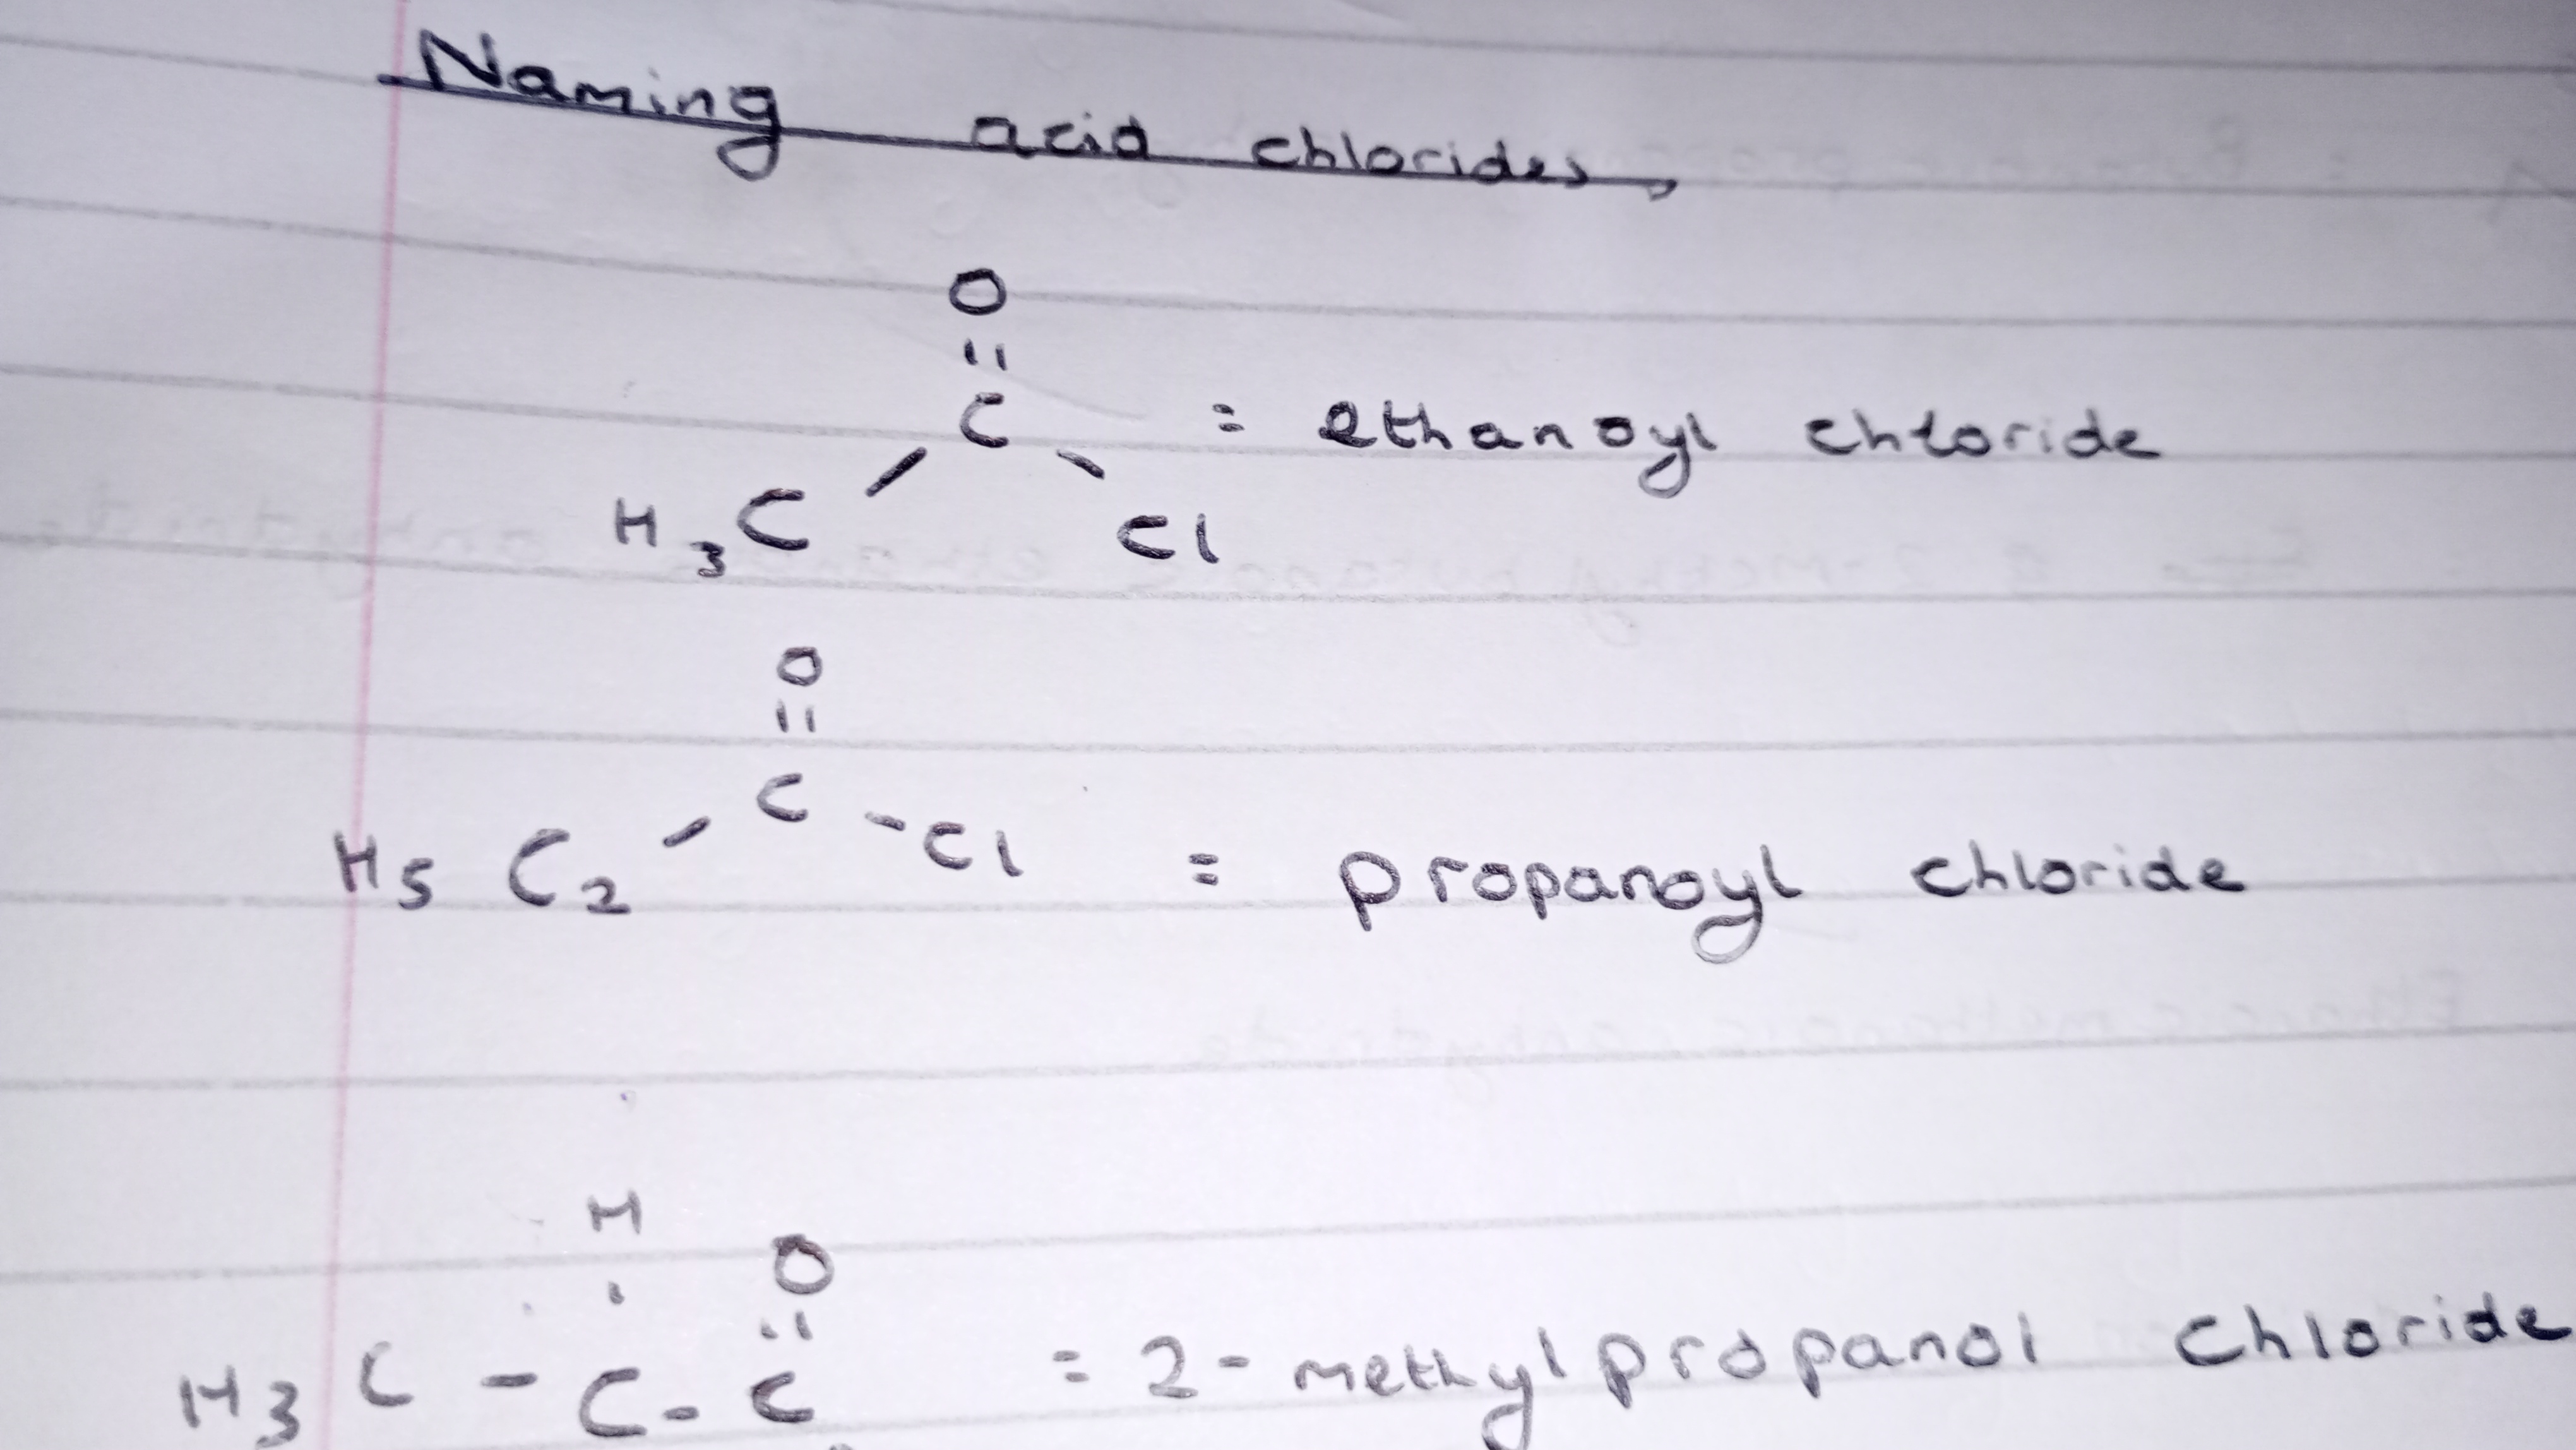 Naming acid chlorides,
O
=
C = ethanoyl chloride
H3C Cl
O
=
C
H5 C2 - C - Cl = propanoyl chloride
H
O
H3 C - C - C = 2-methylpropanol chloride